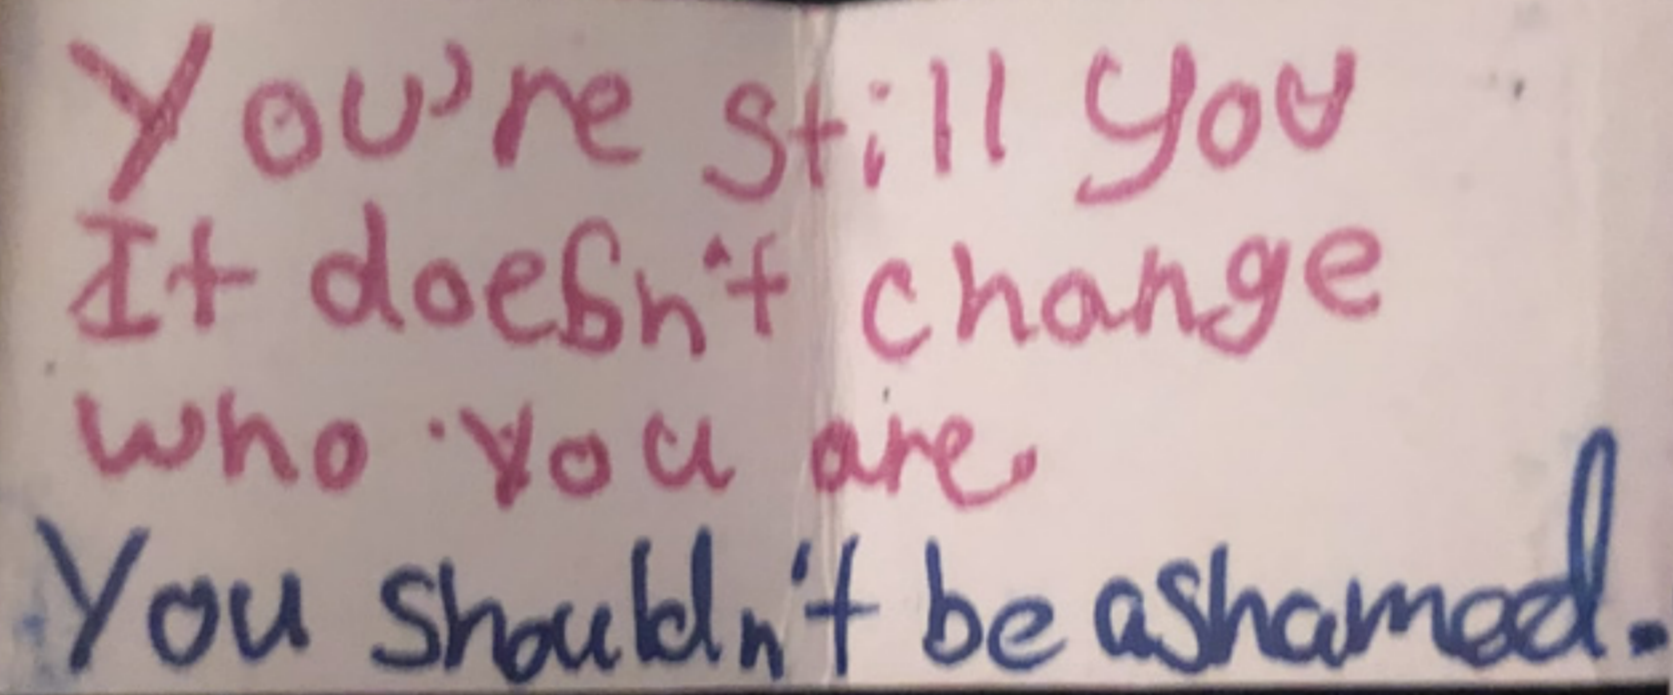 You're still you
It doesn't change
who you are.
You shouldn't be ashamed.